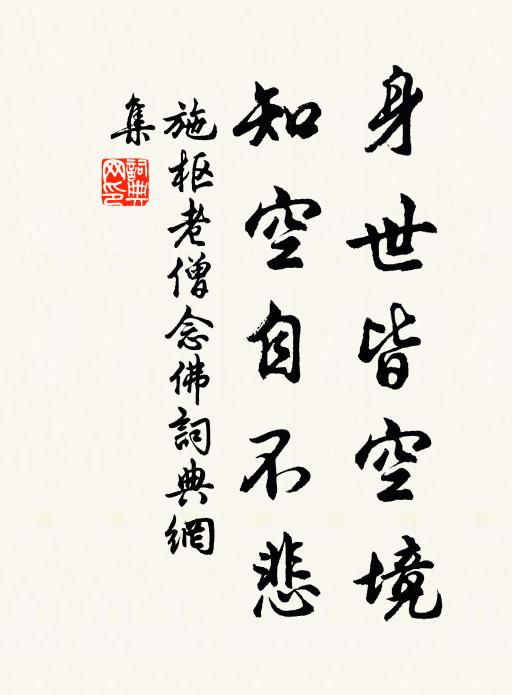 身世皆空境
知空自不悲
施枢老僧念佛詞典網
集
詞典網印